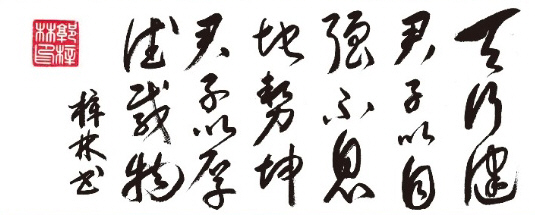 天行健
君子以自
强不息
地勢坤
君子以厚
德載物
梓林书
郭梓
林印